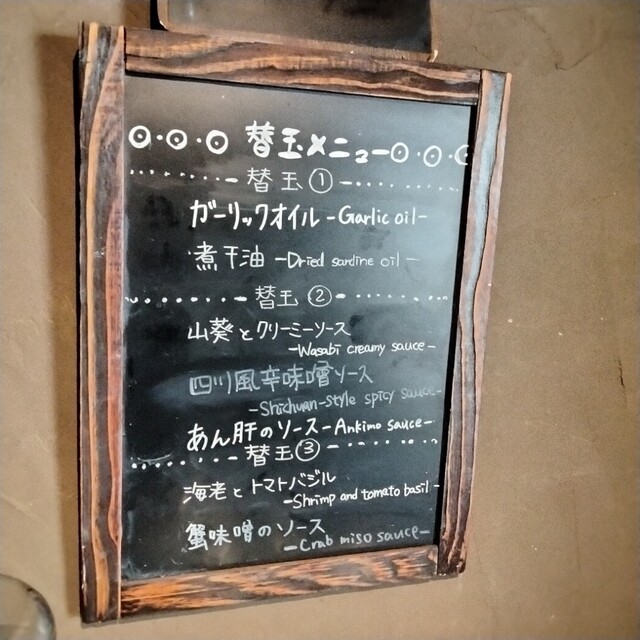 ⊙・⊙・⊙ 替玉メニュー ⊙・⊙・⊙
替玉①
ガーリックオイル -Garlic oil-
煮干油 -Dried sardine oil-
替玉②
山葵とクリーミーソース
-Wasabi creamy sauce-
四川風辛味噌ソース
-Shichuan-style spicy sauce-
あん肝のソース -Ankimo sauce-
替玉③
海老とトマトバジル
-Shrimp and tomato basil-
蟹味噌のソース
-Crab miso sauce-